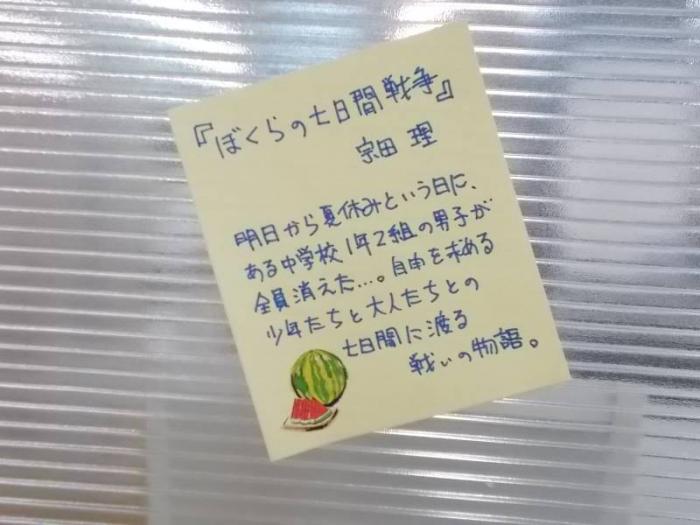 『ぼくらの七日間戦争』
宗田 理
明日から夏休みという日に、
ある中学校1年2組の男子が
全員消えた…。自由を求める
少年たちと大人たちとの
七日間に渡る
戦いの物語。